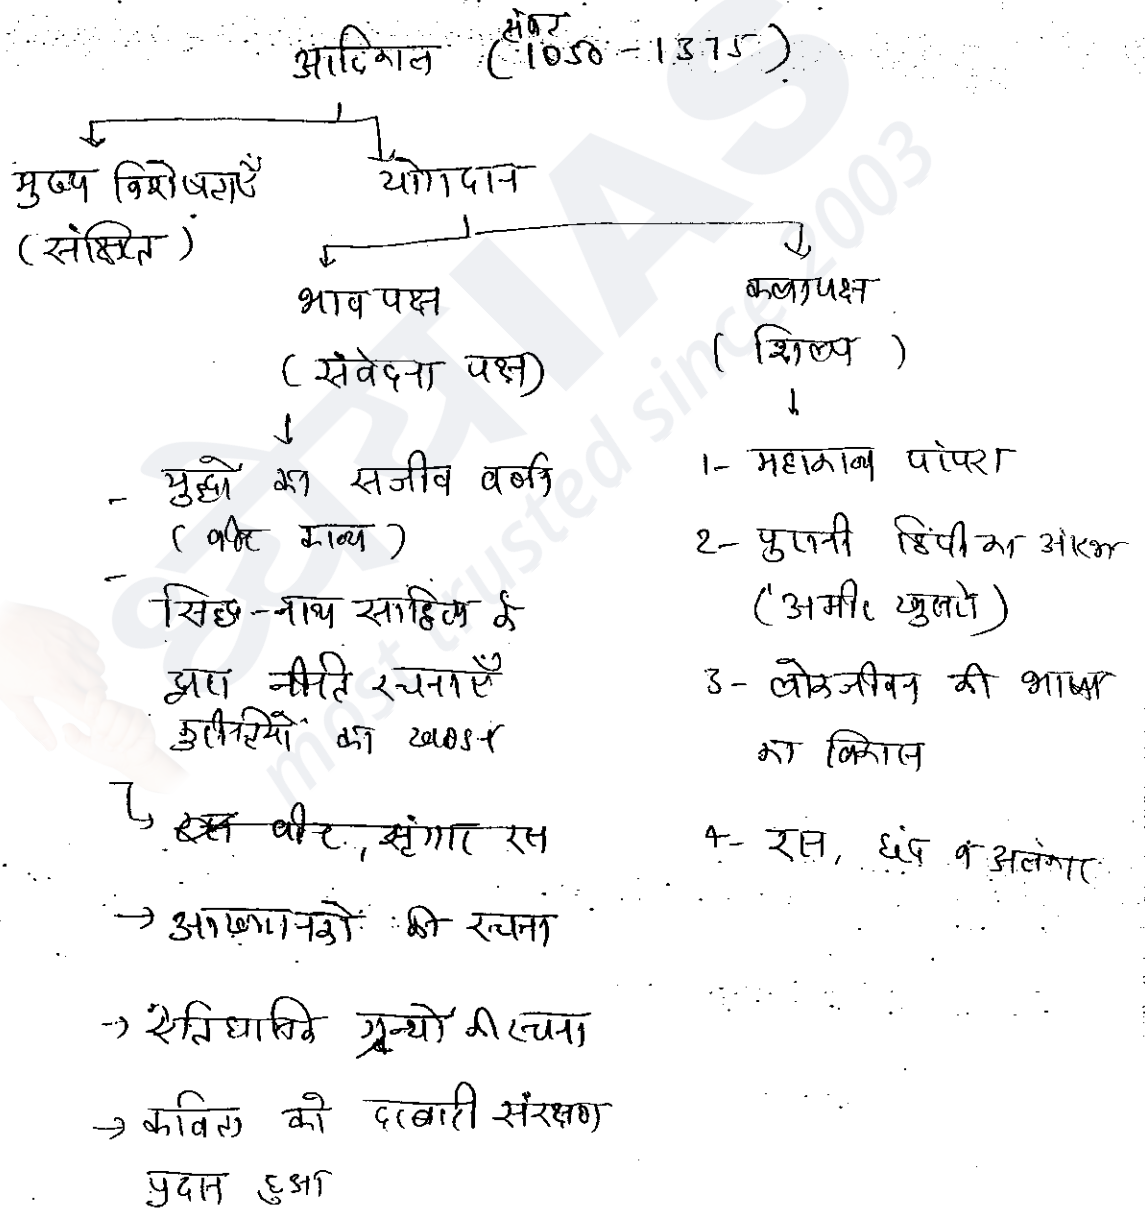 संवत
आदिकाल (1050-1375)
मुख्य विशेषताएँ
(संक्षिप्त)
योगदान
भाव पक्ष
(संवेदना पक्ष)
- युद्धों का सजीव वर्णन
(वीर काव्य)
- सिद्ध-नाथ साहित्य के
द्वारा नीति रचनाएँ
कुरीतियों का खण्डन
↳ वीर, शृंगार रस
→ आख्यानकों की रचना
→ ऐतिहासिक ग्रन्थों की रचना
→ कविता को दरबारी संरक्षण
प्रदान हुआ
कलापक्ष
(शिल्प)
1- महाकाव्य परंपरा
2- पुरानी हिंदी का आरंभ
(अमीर खुसरो)
3- लोकजीवन की भाषा
का विकास
4- रस, छंद व अलंकार
ध्येय IAS
most trusted since 2003